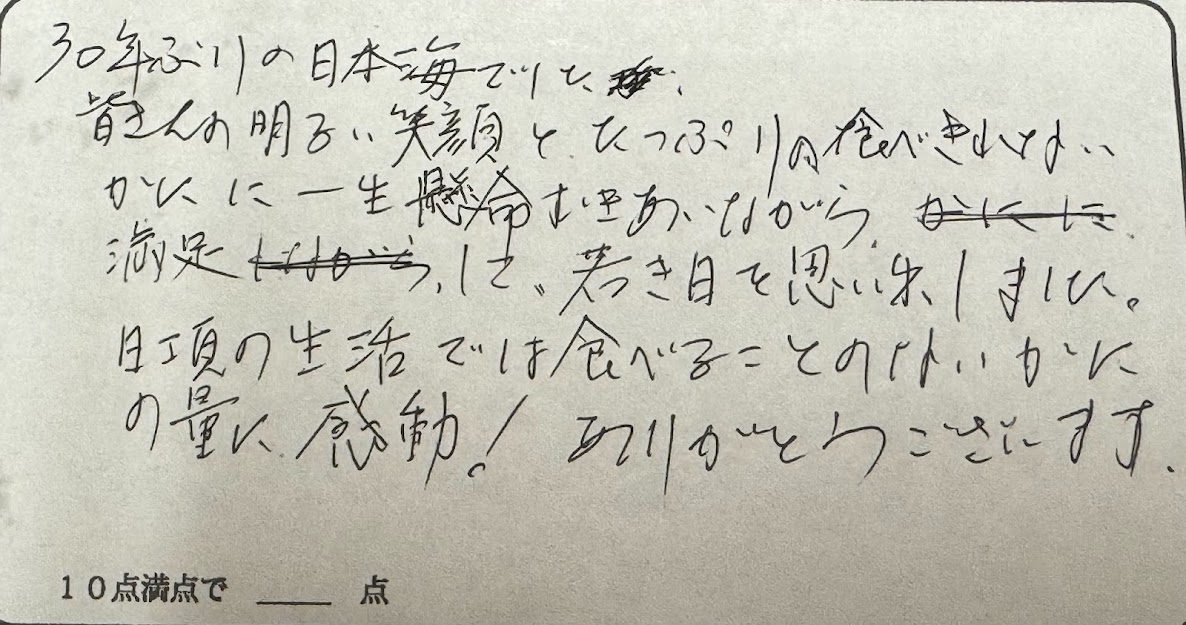 30年ぶりの日本海でした、
皆さんの明るい笑顔と、たっぷりの食べきれない
かにに一生懸命むきあいながら、かにに
満足しながら、して、若き日を思い出しました。
日頃の生活では食べることのないかに
の量に感動！ありがとうございます.
10点満点で ____ 点